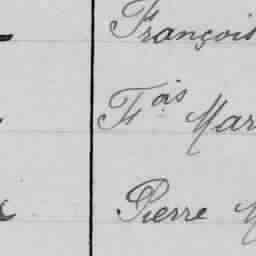 François
Fois Mar
Pierre M